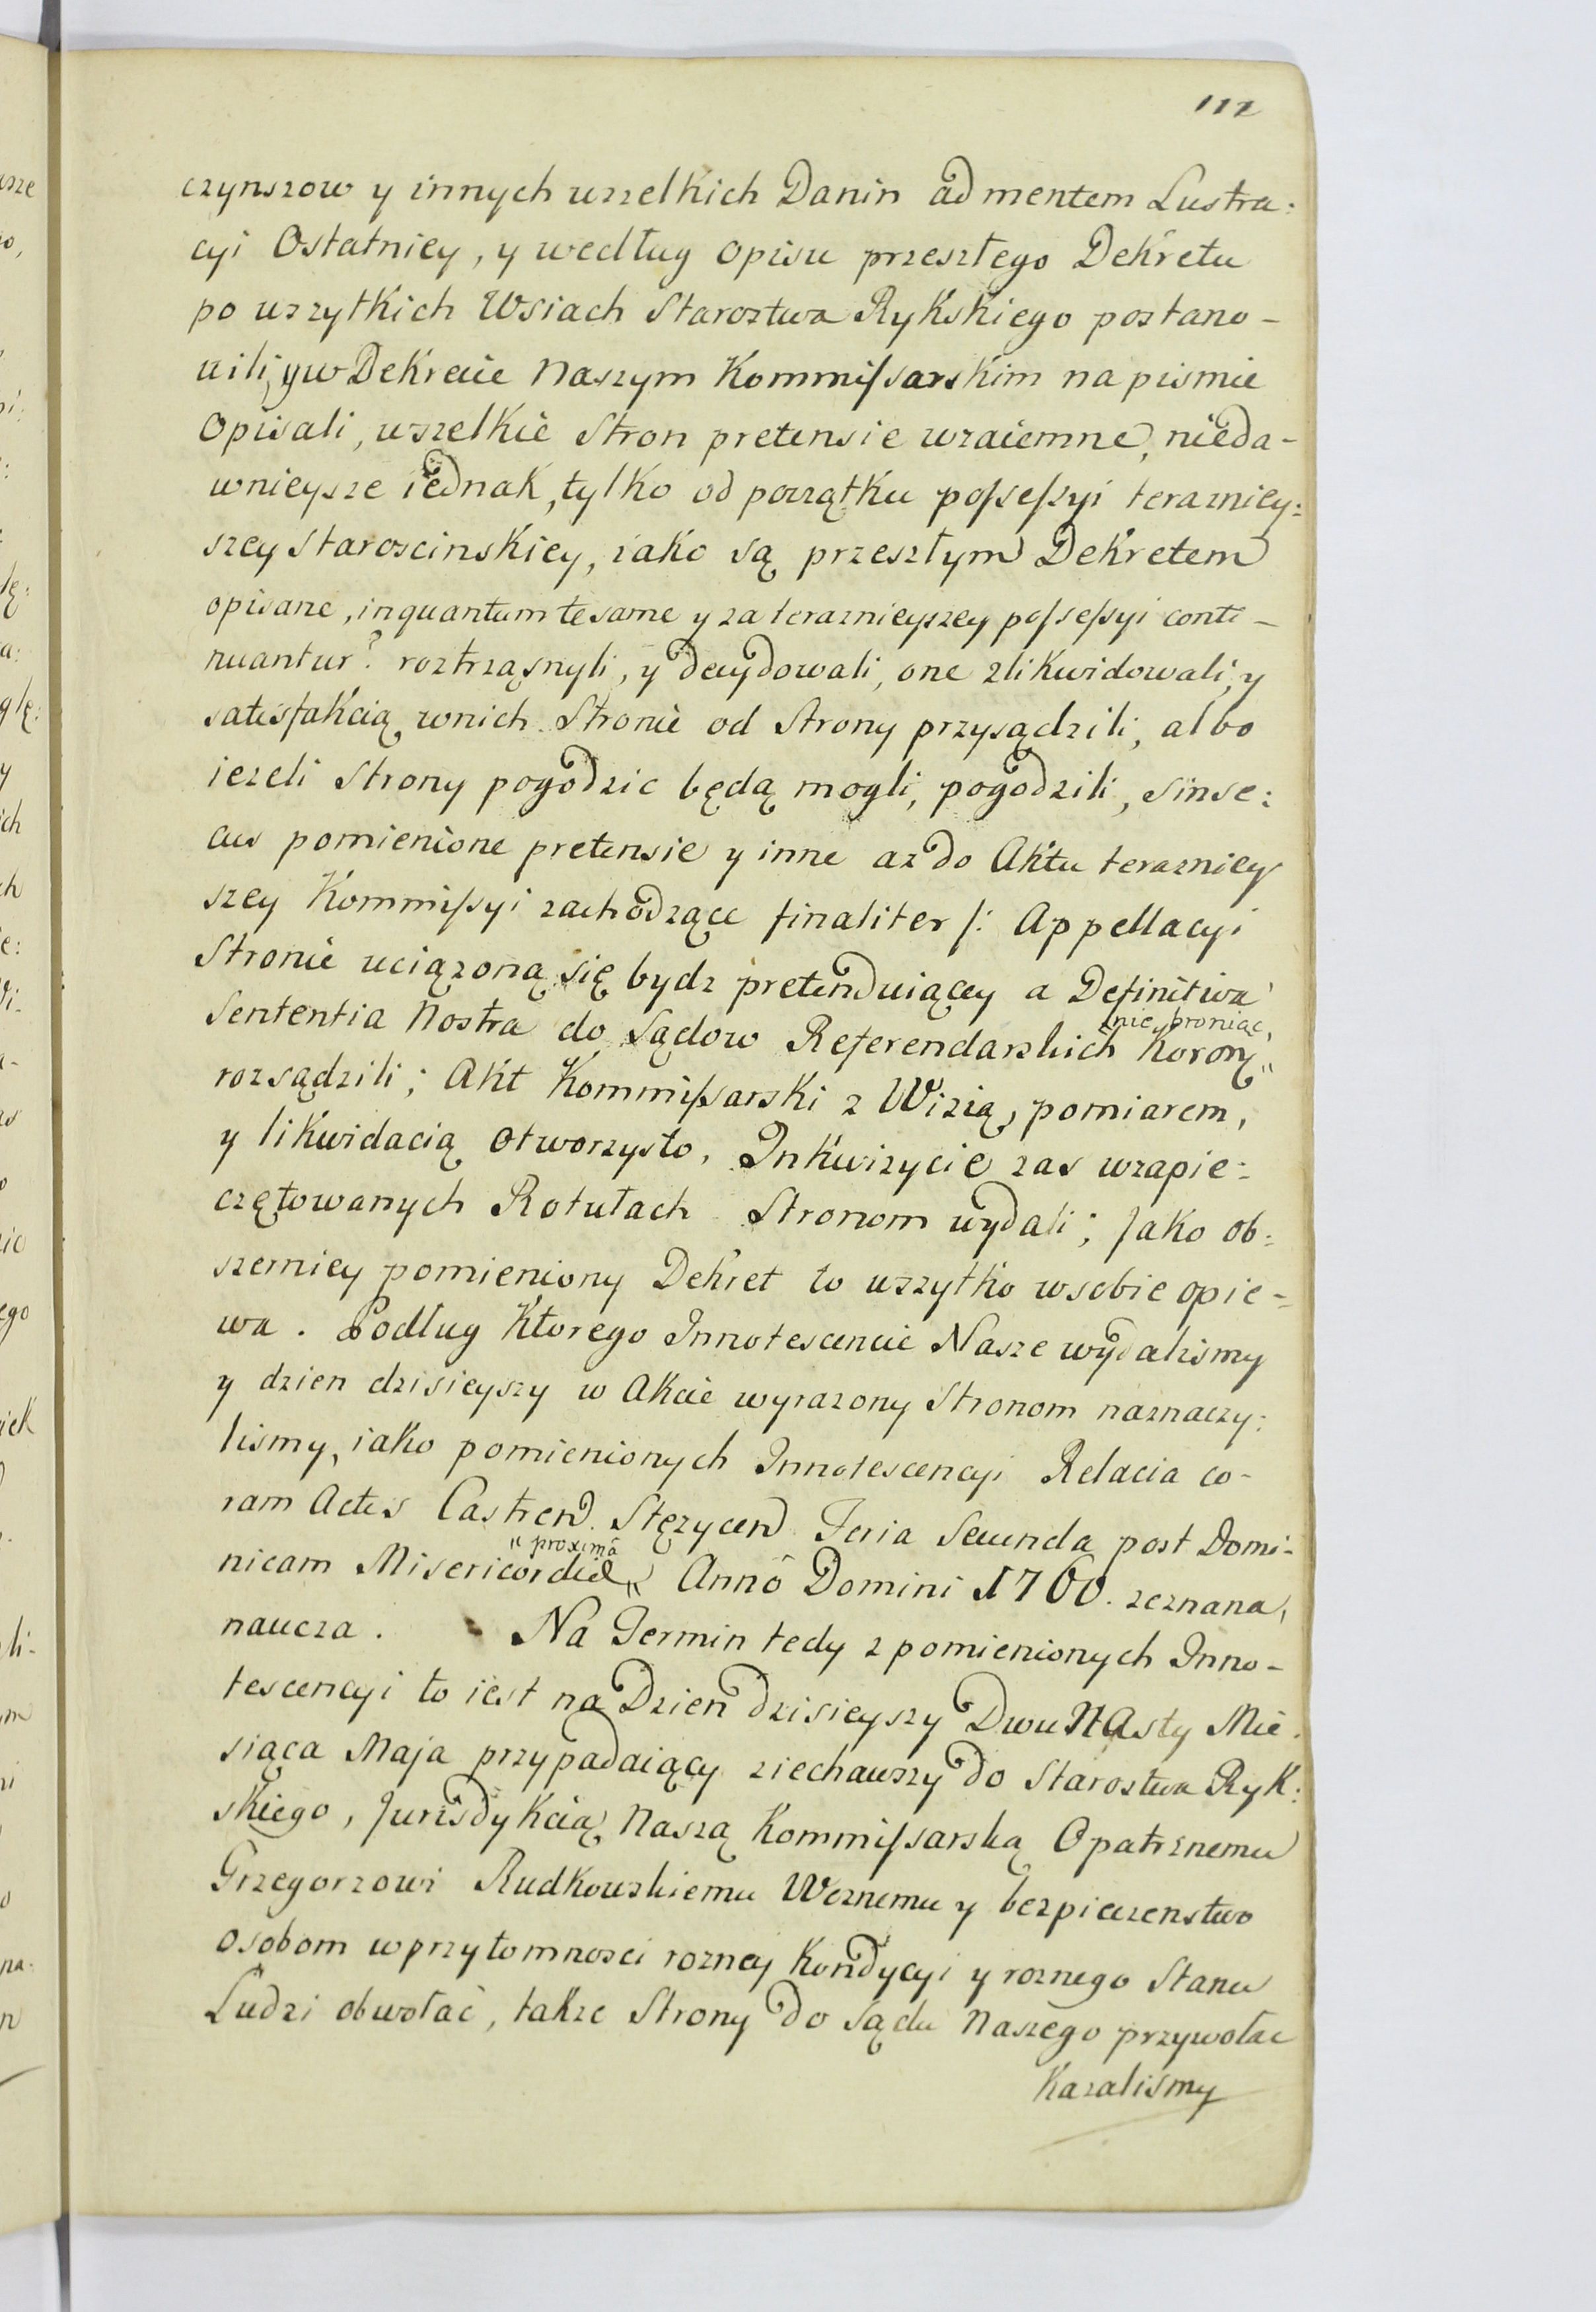 112
czynszow y innych wszelkich Danin ad mentem Lustra:
cyi Ostatniey, y według opisu przeszłego Dekretu
po wszytkich Wsiach Starostwa Rykskiego postano-
wili, y w Dekrecie Naszym Kommissarskim na pismie
Opisali, wszelkie Stron pretensie wzaiemne, nieda-
wnieysze iednak, tylko od początku possessyi terazniey:
szey Staroscinskiey, iako są przeszłym Dekretem
opisane, inquantum te same y za teraznieyszey possessyi conti-
nuantur? roztrząsnyli, y decydowali, one zlikwidowali, y
satisfakcią wnich Stronie od Strony przysądzili, albo
iezeli Strony pogodzic będą mogli, pogodzili, sinse:
cus pomienione pretensie y inne az do Aktu terazniey
szey Kommissyi zachodzące finaliter /: Appellacyi
Stronie uciązoną się bydz pretenduiącey a Definitiva
Sententia Nostra do Sądow Referendarskich Korony
nie broniąc,
rozsądzili; Akt Kommissarski z Wizią, pomiarem,
y likwidacią otworzysto, Inkwizycie zas wzapie:
czętowanych Rotułach Stronom wydali; Jako ob:
szerniey pomieniony Dekret to wszytko wsobie opie-
wa. Podług Ktorego Innotescencie Nasze wydalismy
y dzien dzisieyszy w Akcie wyrazony Stronom naznaczy:
lismy, iako pomienionych Innotescencyi Relacia co-
ram Actis Castren. Stęzycen. Feria Secunda post Domi-
nicam Misericordiæ " Anno Domini 1760. zeznana,
" proximâ
naucza. Na Termin tedy z pomienionych Inno-
tescencyi to iest na Dzien dzisieyszy Dwunasty Mie.
siąca Maja przypadaiący ziechawszy do Starostwa Ryk:
skiego, Jurisdykcią Naszą Kommissarską Opatrznemu
Grzegorzowi Rudkowskiemu Woznemu y bezpieczenstwo
osobom wprzytomnosci rozney Kondycyi y roznego Stanu
Ludzi obwołać, takze Strony do Sądu Naszego przywołac
Kazalismy